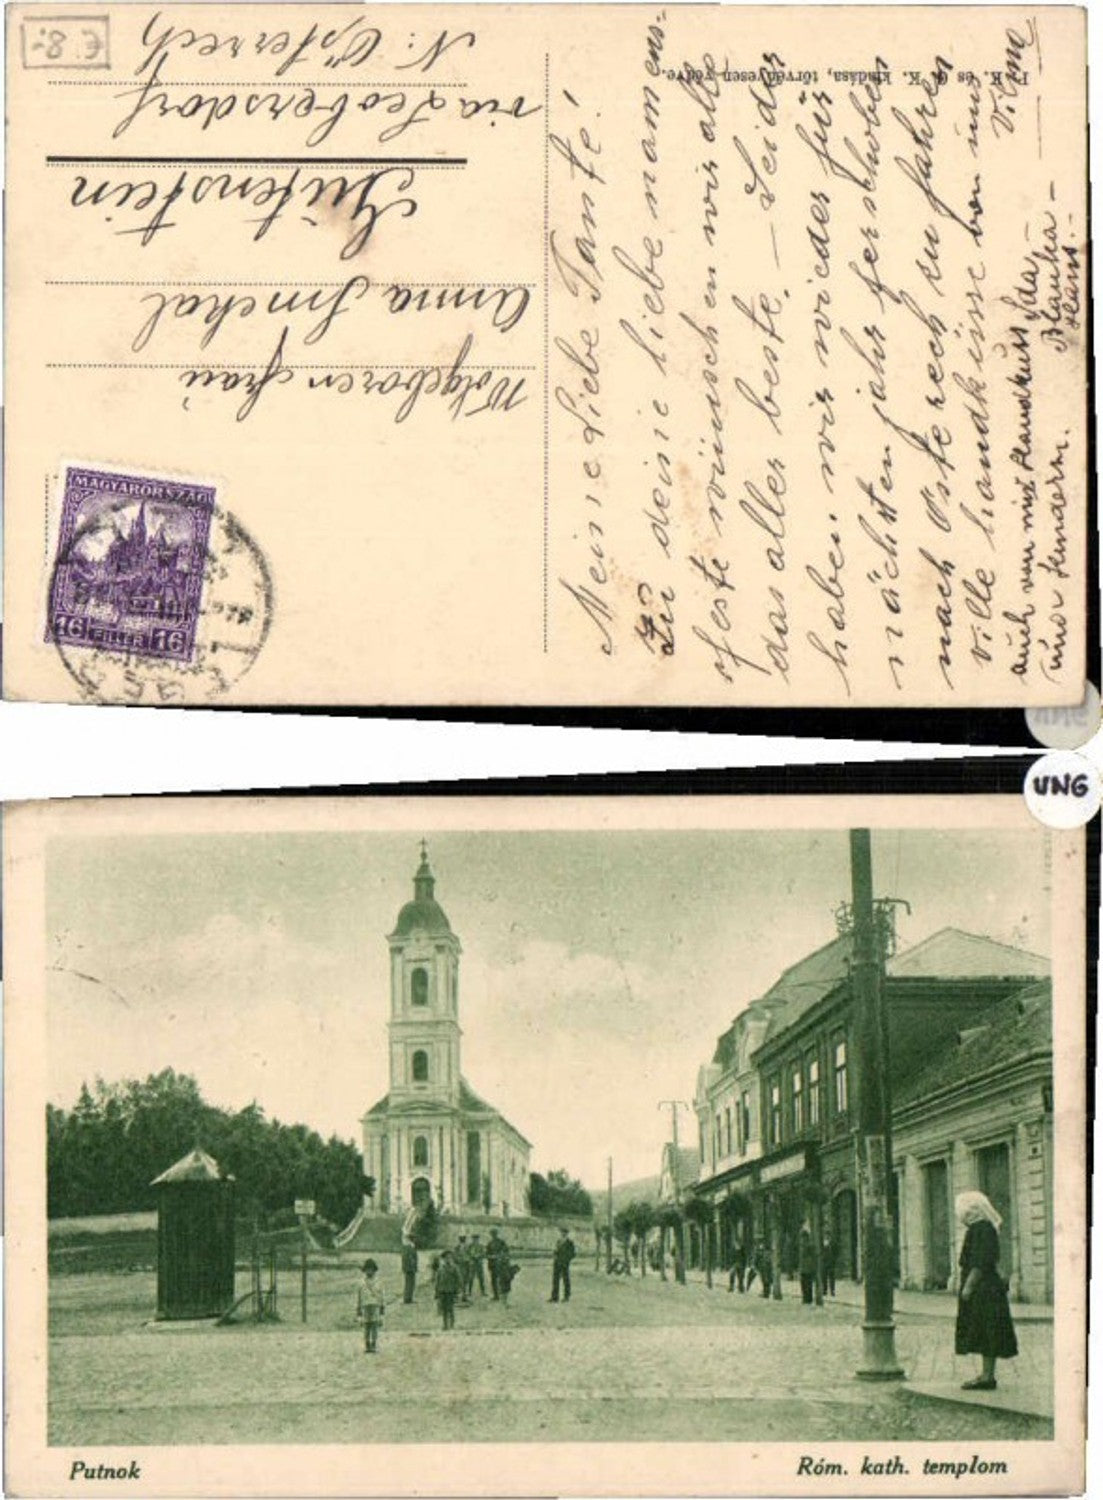 € 8.-
Wolgeboren Frau
Anna Smekal
Gutenstein
via Leobersdorf
N: Österreich
MAGYARORSZÁG
16 FILLÉR 16
K. és
K. kiadása, törvényesen védve.
Meine Liebe Tante!
Zu deine liebe namens-
feste wünschen wir alle
das aller beste. — Leider
haben wir wieder für
nächsten jahr ferschoben
nach Österech zu fahren
ville handküsse von uns
Vilma
auch von mir Handkuss Ida
und kindern.
UNG
Putnok
Róm. kath. templom